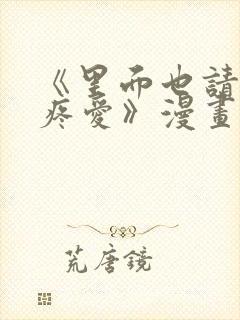 《里而也請
疼愛》漫畫
荒唐鏡